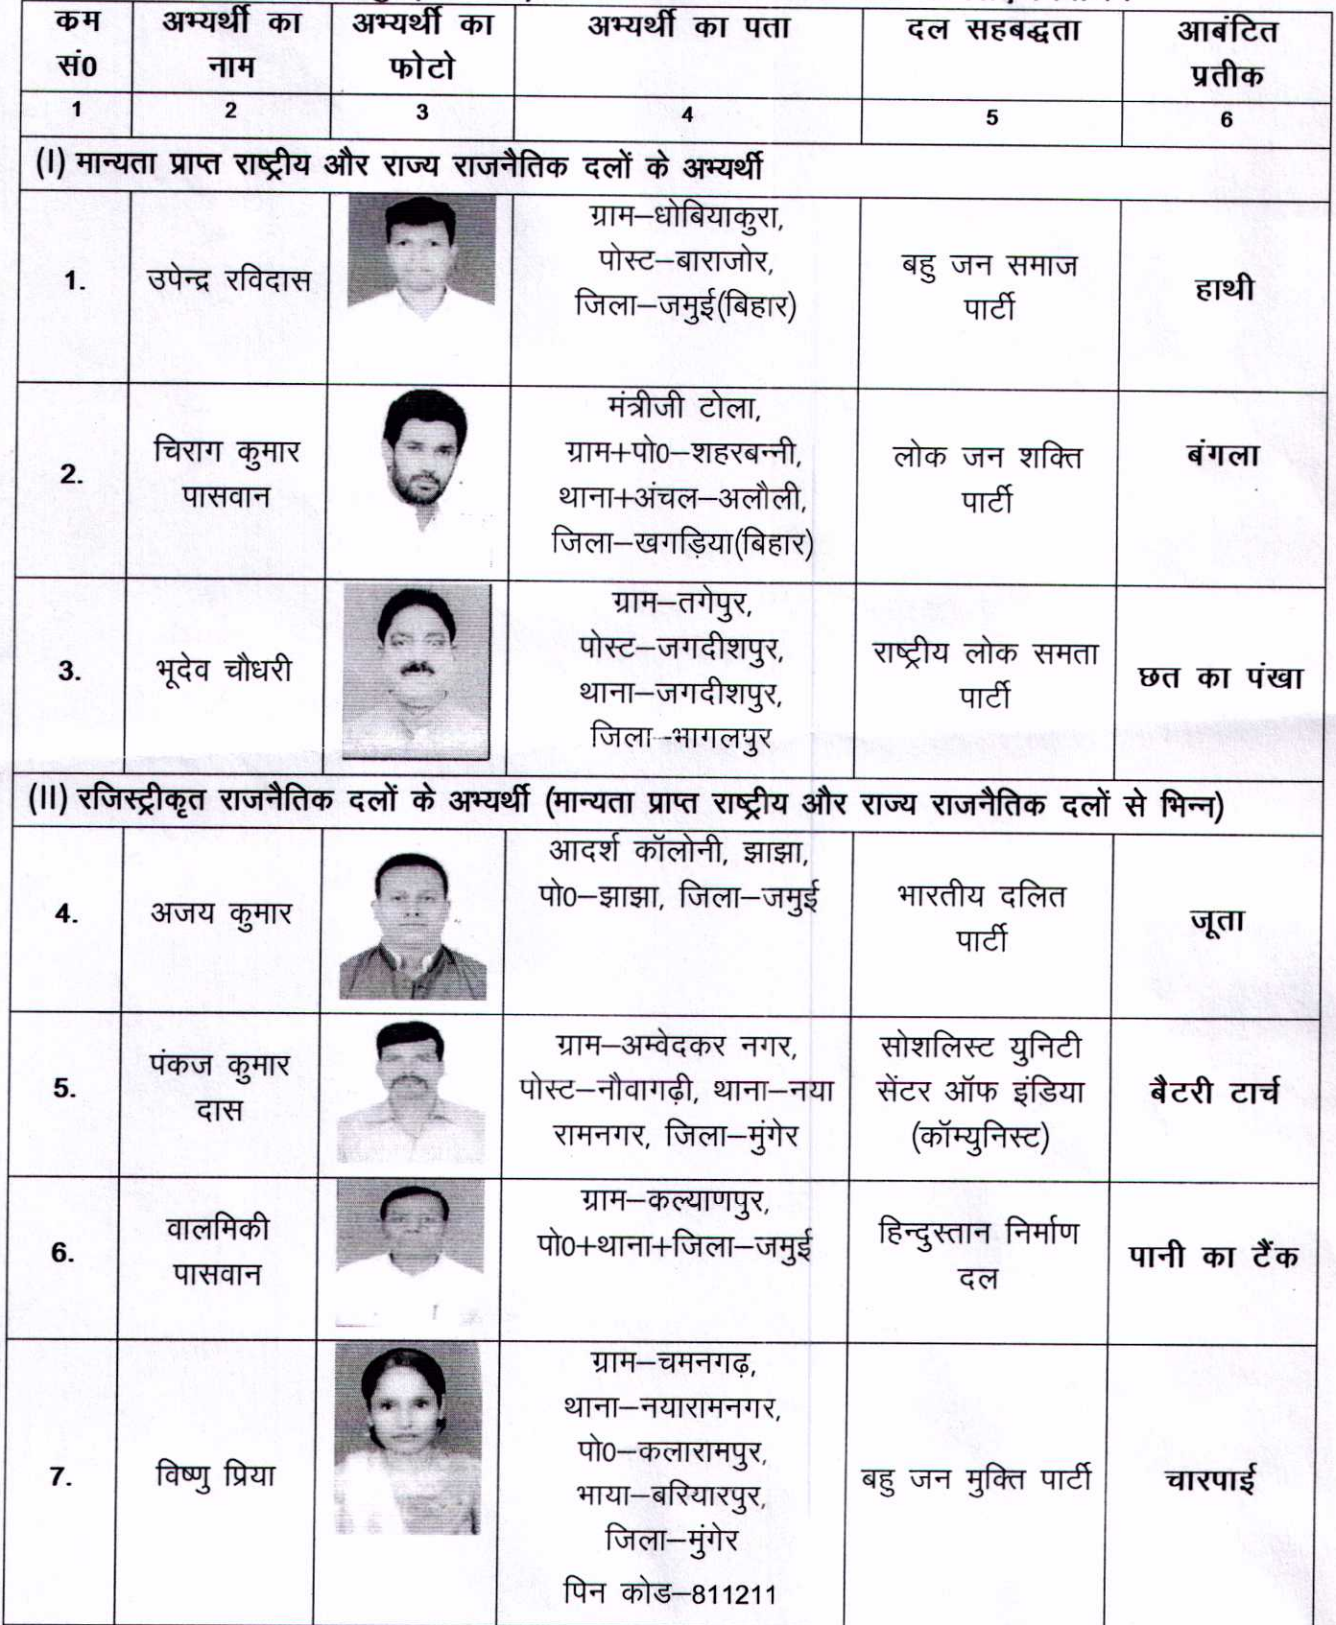 कम सं0 अभ्यर्थी का नाम अभ्यर्थी का फोटो अभ्यर्थी का पता दल सहबद्धता आबंटित प्रतीक
1 2 3 4 5 6
(I) मान्यता प्राप्त राष्ट्रीय और राज्य राजनैतिक दलों के अभ्यर्थी
1.
उपेन्द्र रविदास
ग्राम–धोबियाकुरा,
पोस्ट–बाराजोर,
जिला–जमुई(बिहार)
बहु जन समाज
पार्टी
हाथी
2.
चिराग कुमार
पासवान
मंत्रीजी टोला,
ग्राम+पो0–शहरबन्नी,
थाना+अंचल–अलौली,
जिला–खगड़िया(बिहार)
लोक जन शक्ति
पार्टी
बंगला
3.
भूदेव चौधरी
ग्राम–तगेपुर,
पोस्ट–जगदीशपुर,
थाना–जगदीशपुर,
जिला–भागलपुर
राष्ट्रीय लोक समता
पार्टी
छत का पंखा
(II) रजिस्ट्रीकृत राजनैतिक दलों के अभ्यर्थी (मान्यता प्राप्त राष्ट्रीय और राज्य राजनैतिक दलों से भिन्न)
4.
अजय कुमार
आदर्श कॉलोनी, झाझा,
पो0–झाझा, जिला–जमुई
भारतीय दलित
पार्टी
जूता
5.
पंकज कुमार
दास
ग्राम–अम्वेदकर नगर,
पोस्ट–नौवागढ़ी, थाना–नया
रामनगर, जिला–मुंगेर
सोशलिस्ट युनिटी
सेंटर ऑफ इंडिया
(कॉम्युनिस्ट)
बैटरी टार्च
6.
वालमिकी
पासवान
ग्राम–कल्याणपुर,
पो0+थाना+जिला–जमुई
हिन्दुस्तान निर्माण
दल
पानी का टैंक
7.
विष्णु प्रिया
ग्राम–चमनगढ़,
थाना–नयारामनगर,
पो0–कलारामपुर,
भाया–बरियारपुर,
जिला–मुंगेर
पिन कोड–811211
बहु जन मुक्ति पार्टी
चारपाई